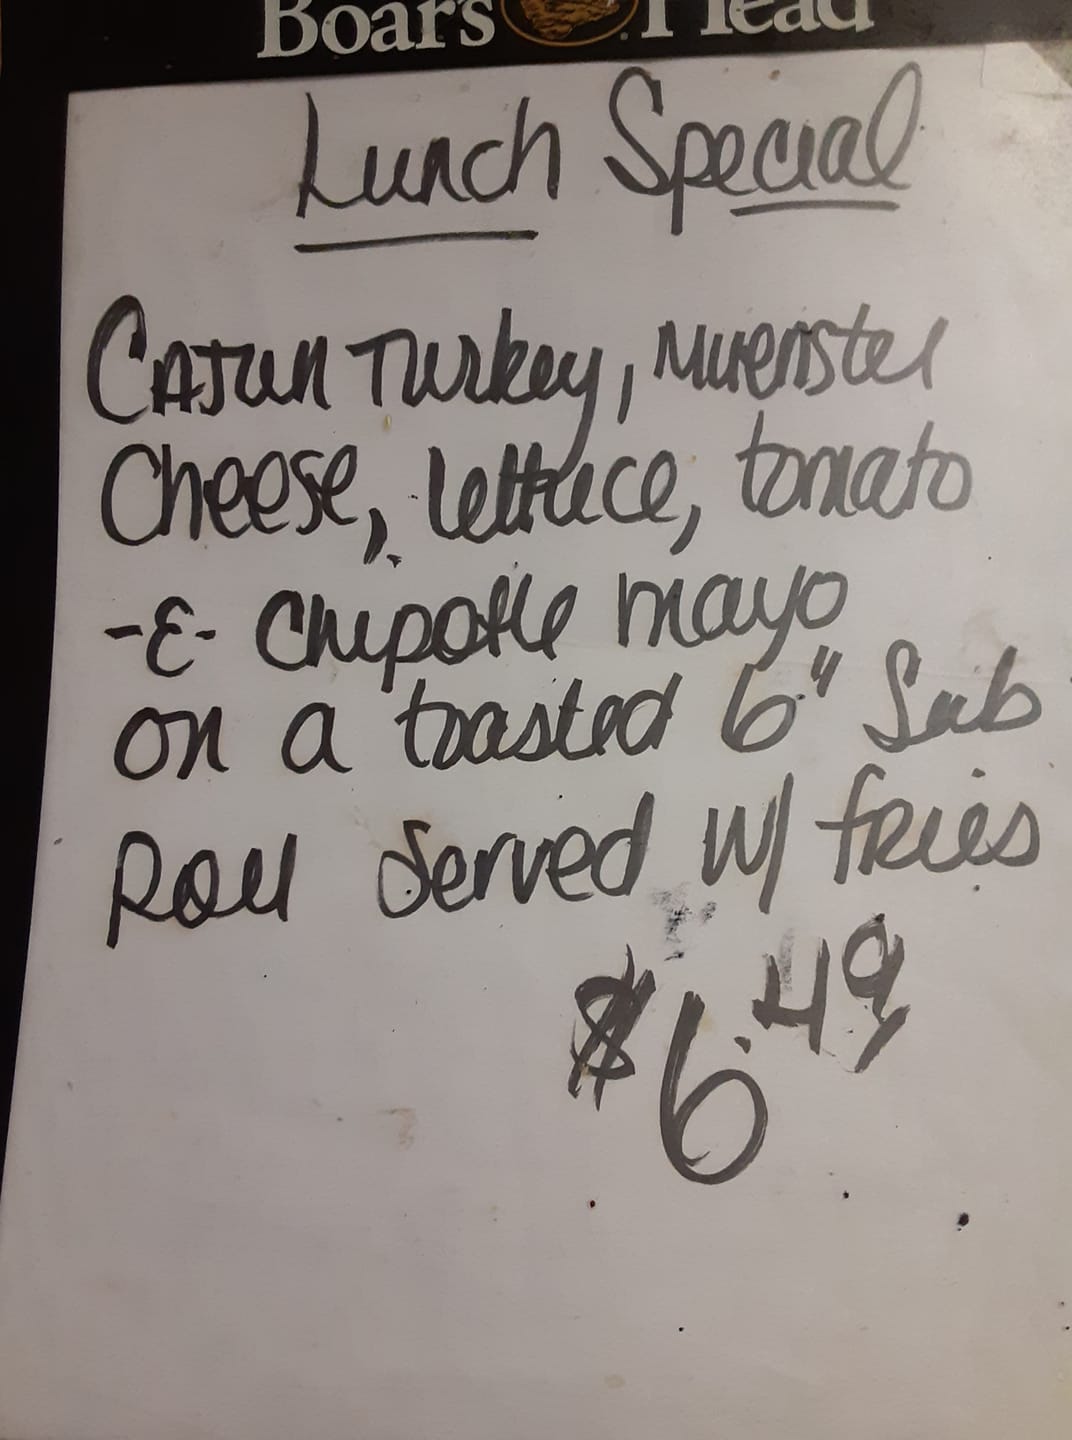 Boar's Head
Lunch Special
Cajun Turkey, Muenster
Cheese, lettuce, tomato
-&- Chipotle mayo
on a toasted 6" Sub
Roll Served w/ fries
$6.49